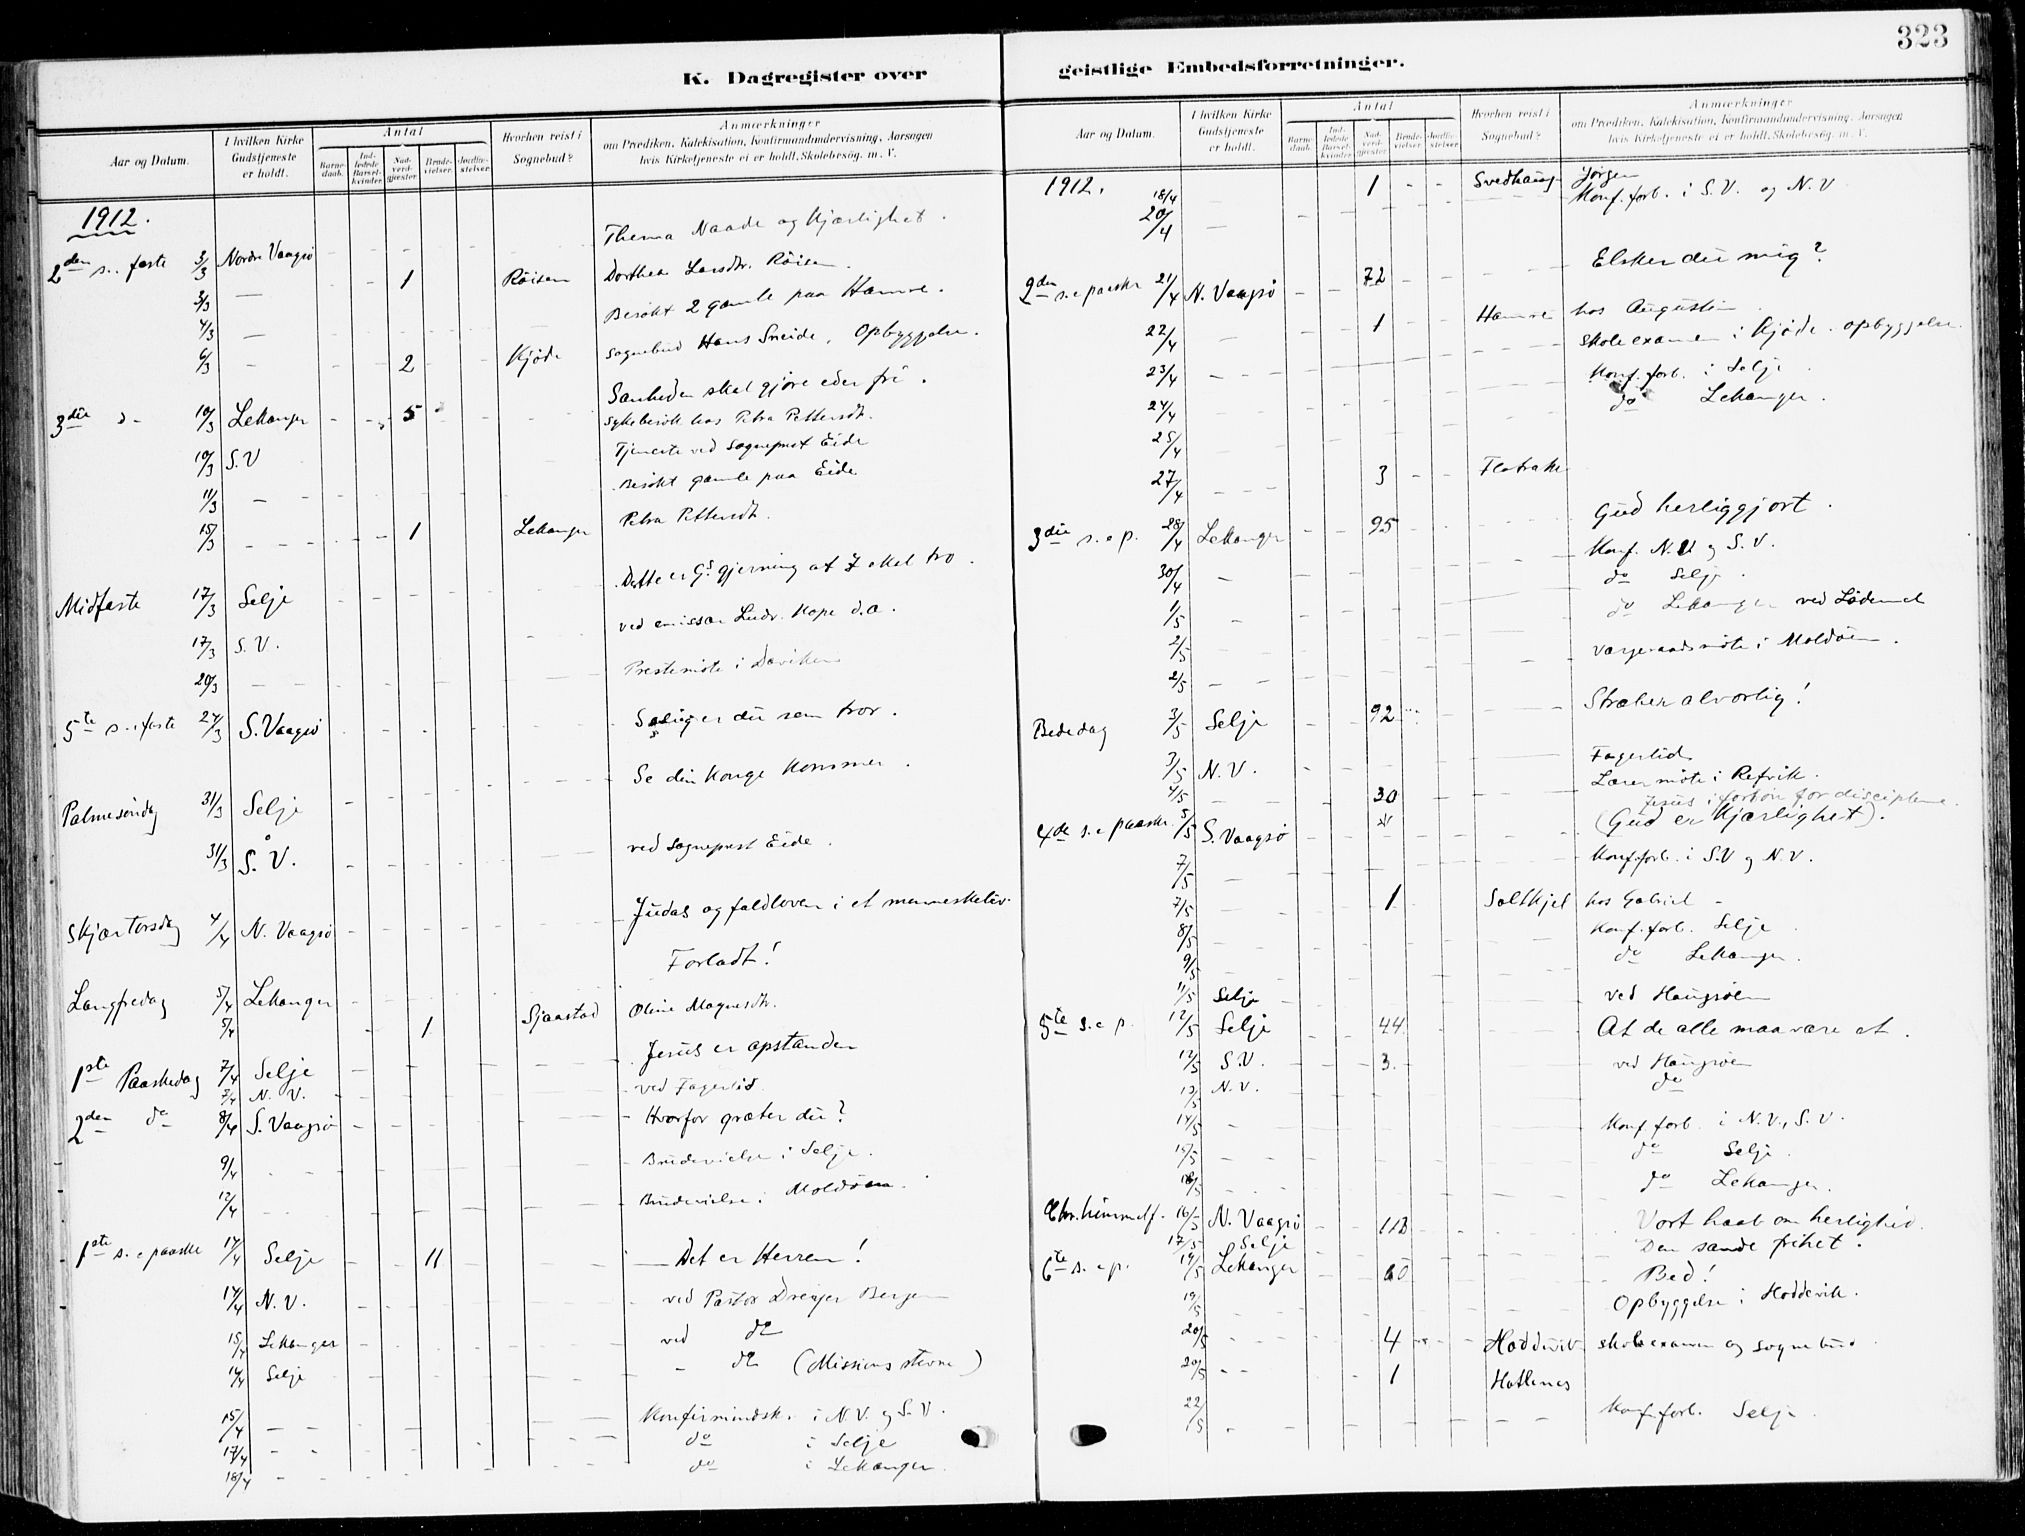 323
K. Dagregister over
Aar og Datum.
I hvilken Kirke Gudstjeneste er holdt.
Antal
Barnedaab.
Indledede Barselkvinder.
Nadverdgjæster.
Brudevielser.
Jordfæstelser.
Hvorhen reist i Sognebud?
Anmærkninger
om Prædiken, Katekisation, Konfirmandundervisning, Aarsagen
hvis Kirketjeneste ei er holdt, Skolebesøg, m. V.
1912.
2den s. i faste 3/3 Nordre Vaagsö - - - - - Thema Naade og Kjærlighet.
3/3 — 1 Röisen Dorthea Larsdtr. Röisen.
4/3 — Besökt 2 gamle paa Hamre.
6/3 - 2 Kjöde Sognebud Hans Sneide, Opbyggelse.
3die d- 10/3 Lekanger - - 5 Sanheden skal gjöre eder fri.
Sykebesök hos Petra Pettersdtr.
10/3 S.V Tjeneste ved Sogneprest Eide
11/3 - Besökt gamle paa Eide
15/3 - 1 Lekanger Petra Pettersdtr.
Midfaste 17/3 Selje Dette er Gs gjerning at I skal tro.
17/3 S.V. ved emissær Ludv. Hope d.a.
20/3 — Prestemöte i Daviken
5te s. i faste 24/3 S. Vaagsö Salig er du som tror.
Palmesöndag 31/3 Selje Se din Konge kommer.
31/3 S. V. ved Sogneprest Eide.
Skjærtorsdag 4/4 N. Vaagsö Judas og faldloven i et menneskeliv.
Langfredag 5/4 Lekanger Forladt!
5/4 1 Sjaastad Oline Magnesdtr.
1ste Paaskedag 7/4 Selje Jesus er opstanden
7/4 N. V. ved Fagerlid.
2den do 8/4 S. Vaagsö Hvorfor græter du?
9/4 Brudevielse i Selje.
12/4 Brudevielse i Moldöen.
1ste s. e paaske 14/4 Selje 11 Det er Herren!
14/4 N.V. ved Pastor Dreyer Bergen
15/4 Lekanger ved do
14/4 Selje - do (Missions stevne)
15/4 — Konfirmindsk. i N.V. og S.V.
17/4 - do i Selje
18/4 - do i Lekanger
geistlige Embedsforretninger.
Aar og Datum.
I hvilken Kirke Gudstjeneste er holdt.
Antal
Barnedaab.
Indledede Barselkvinder.
Nadverdgjæster.
Brudevielser.
Jordfæstelser.
Hvorhen reist i Sognebud?
Anmærkninger
om Prædiken, Katekisation, Konfirmandundervisning, Aarsagen
hvis Kirketjeneste ei er holdt, Skolebesøg, m. V.
1912. 18/4 - 1 - - Svedhaug Jörgen
20/4 - Konf. forb. i S.V. og N.V
2den s. e paaske 21/4 N. Vaagsö - - 72 Elsker du mig?
22/4 - 1 Hamre hos Augustin
23/4 - Skoleexamen i Kjöde. opbyggelse.
24/4 Konf. forb. i Selje
25/4 do Lekanger.
27/4 3 - - Flatrake
3die s. e p. 28/4 Lekanger - - 95 Gud herliggjort.
30/4 - Konf. N.V og S.V.
1/5 - do Selje.
2/5 do Lekanger ved Lödemel
2/5 - Vergeraadsmöte i Moldöen.
Bededag 3/5 Selje 92 Stræber alvorlig!
3/5 N.V. Fagerlid
4/5 30 Lærermöte i Refvik.
Jesus i forbön for disciplene.
4de s. e paaske. 5/5 S. Vaagsö (Gud er Kjærlighet).
7/5 - Konf. forb. i S.V og N.V.
7/5 1 Saltkjel hos Gabriel -
8/5 Konf. forb. Selje
9/5 do Lekanger.
11/5 Selje ved Haugsöen
5te s. e p. 12/5 Selje 44 At de alle maa være et.
12/5 S.V. 3 ved Haugsöen
12/5 N.V. do
14/5 - Konf. forb. i N.V., S.V.
15/5 - do Selje.
do Lekanger.
Chr. himmelf. 16/5 N. Vaagsö Vort haab om herlighed.
17/5 Selje Den sande frihet.
6te s. e p. 19/5 Lekanger 60 Bed!
19/5 Opbyggelse i Hoddevik.
20/5 4 Hoddevik skoleexamen og sognebud
20/5 - - 1 Hatlenes
22/5 Konf. forb. Selje.